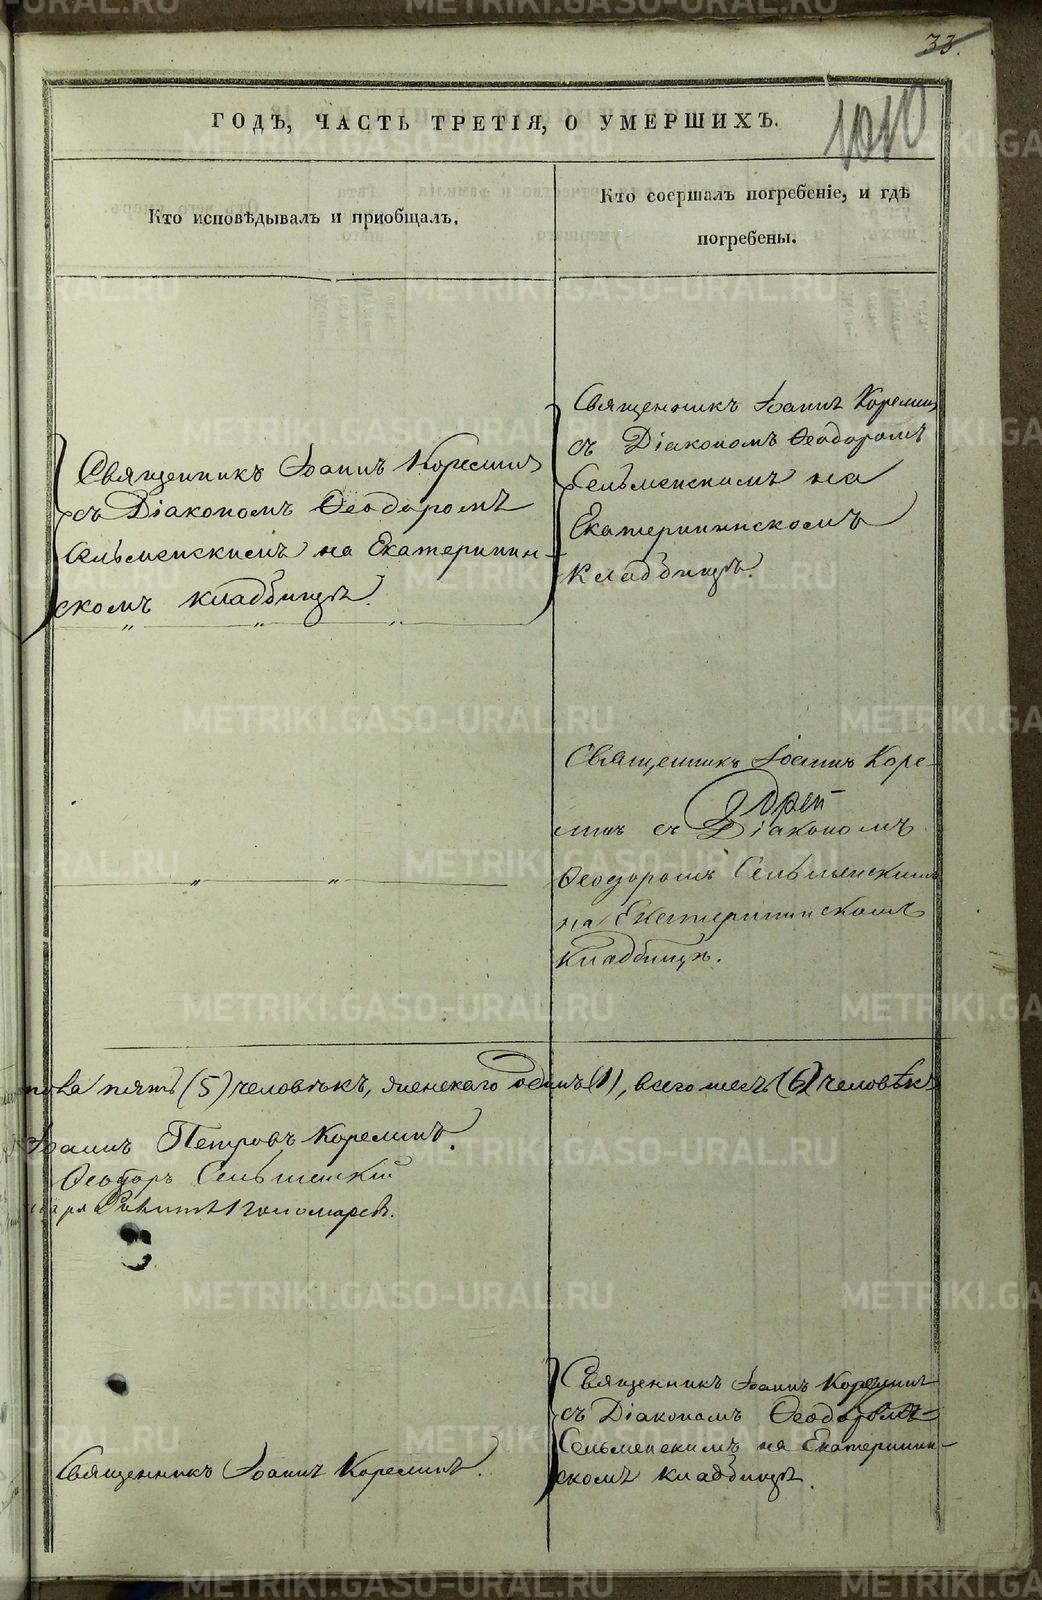 33.
1010
ГОДЪ, ЧАСТЬ ТРЕТІЯ, О УМЕРШИХЪ.
Кто исповѣдывалъ и пріобщалъ.
Кто соершалъ погребеніе, и гдѣ
погребены.
Священникъ Іоаннъ Коремин
съ Діакономъ Ѳеодоромъ
Сельменскимъ на
Екатерининскомъ
Кладбищѣ.
Священникъ Іоаннъ Кореминъ
съ Діакономъ Ѳеодоромъ
Сельменскимъ на Екатеринин-
скомъ кладбищѣ.
Священникъ Іоаннъ Коре-
минъ съ Діакономъ
Ѳеодоромъ Сельменскимъ
на Екатерининскомъ
Кладбищѣ.
пола пять (5) человѣкъ, женскаго одинъ (1), всего шесть (6) человѣкъ
Іоаннъ Петровъ Кореминъ.
Ѳеодоръ Сельменскій
Пономаревъ.
Священникъ Іоаннъ Кореминъ
съ Діакономъ Ѳеодоромъ
Сельменскимъ на Екатеринин-
скомъ кладбищѣ.
Священникъ Іоаннъ Кореминъ.
METRIKI.GASO-URAL.RU